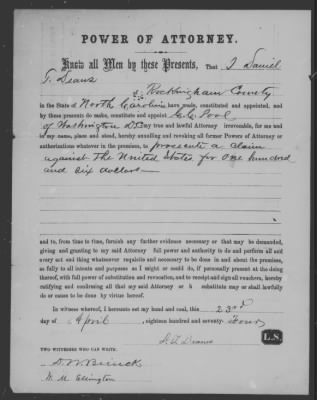 POWER OF ATTORNEY.
Know all Men by these Presents, That I Daniel
T. Deans
of Rockingham County
in the State of North Carolina have made, constituted and appointed, and
by these presents do make, constitute and appoint C. C. Pool
of Washington D.C. my true and lawful Attorney irrevocable, for me and
in my name, place and stead, hereby annulling and revoking all former Powers of Attorney or
authorizations whatever in the premises, to prosecute a claim
against the United States for One hundred
and six dollars
and to, from time to time, furnish any further evidence necessary or that may be demanded,
giving and granting to my said Attorney full power and authority to do and perform all and
every act and thing whatsoever requisite and necessary to be done in and about the premises,
as fully to all intents and purposes as I might or could do, if personally present at the doing
thereof, with full power of substitution and revocation, and to receipt and sign all vouchers, hereby
ratifying and confirming all that my said Attorney or h substitute may or shall lawfully
do or cause to be done by virtue hereof.
In witness whereof, I hereunto set my hand and seal, this 23rd
day of April eighteen hundred and seventy-Four
D. T. Deans
L.S.
TWO WITNESSES WHO CAN WRITE.
D. W.
M. Ellington